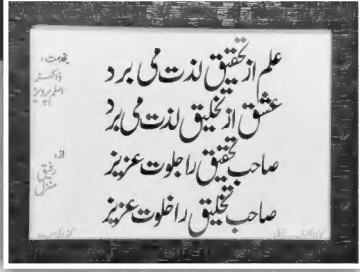 علم از تحقیق لذت می برد
عشق از تخلیق لذت می برد
صاحب تحقیق را جلوت عزیز
صاحب تخلیق را خلوت عزیز
بخدمت،
ڈاکٹر
اسلم پرویز
از،
رفیق
منزل